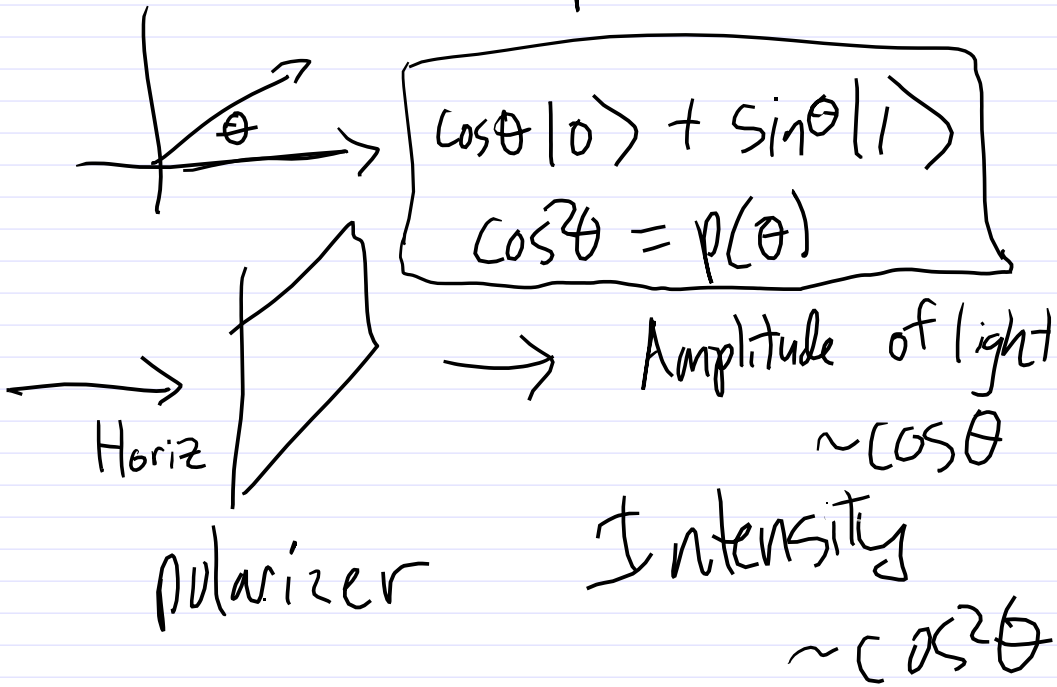 θ
cosθ|0⟩ + sinθ|1⟩
cos²θ = p(θ)
Horiz
polarizer
Amplitude of light
~cosθ
Intensity
~cos²θ